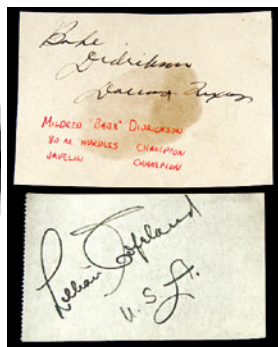 Babe
Didrikson
Dallas Texas
MILDRED "BABE" DIDRICKSON
80 M. HURDLES CHAMPION
JAVELIN CHAMPION
Lillian Copeland
U.S.A.